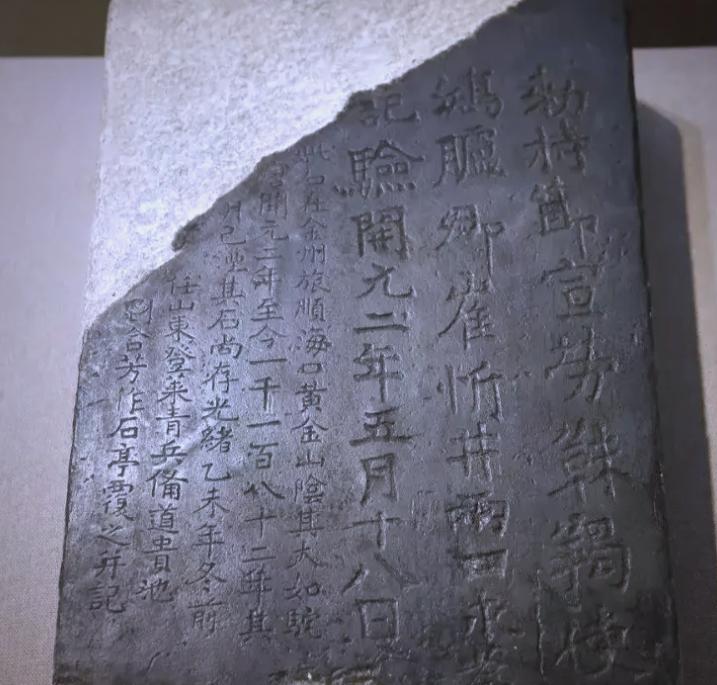 勅持節宣勞靺羯使
鴻臚卿崔忻井兩口永為
記驗開元二年五月十八日
此石在金州旅順海口黃金山陰其大如駝
開元二年至今一千一百八十二年其
井已堙其石尚存光緒乙未年冬前
任山東登萊青兵備道貴池
劉含芳作石亭覆之并記